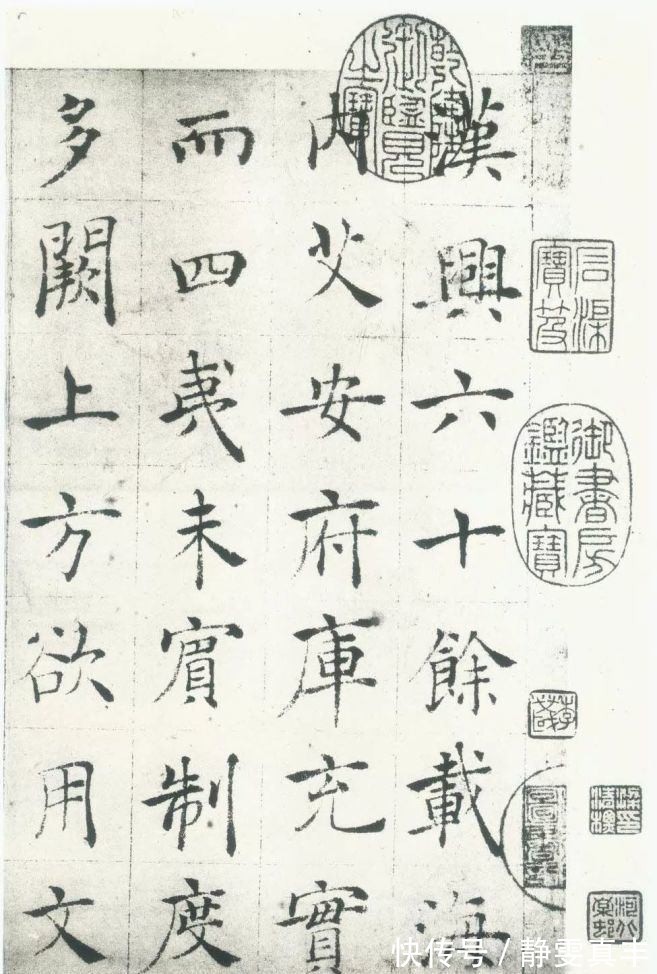 漢興六十餘載海
内艾安府庫充實
而四夷未賓制度
多闕上方欲用文
乾隆御覽之寶
石渠寶笈
御書房鑑藏寶
快传号/静雯真丰